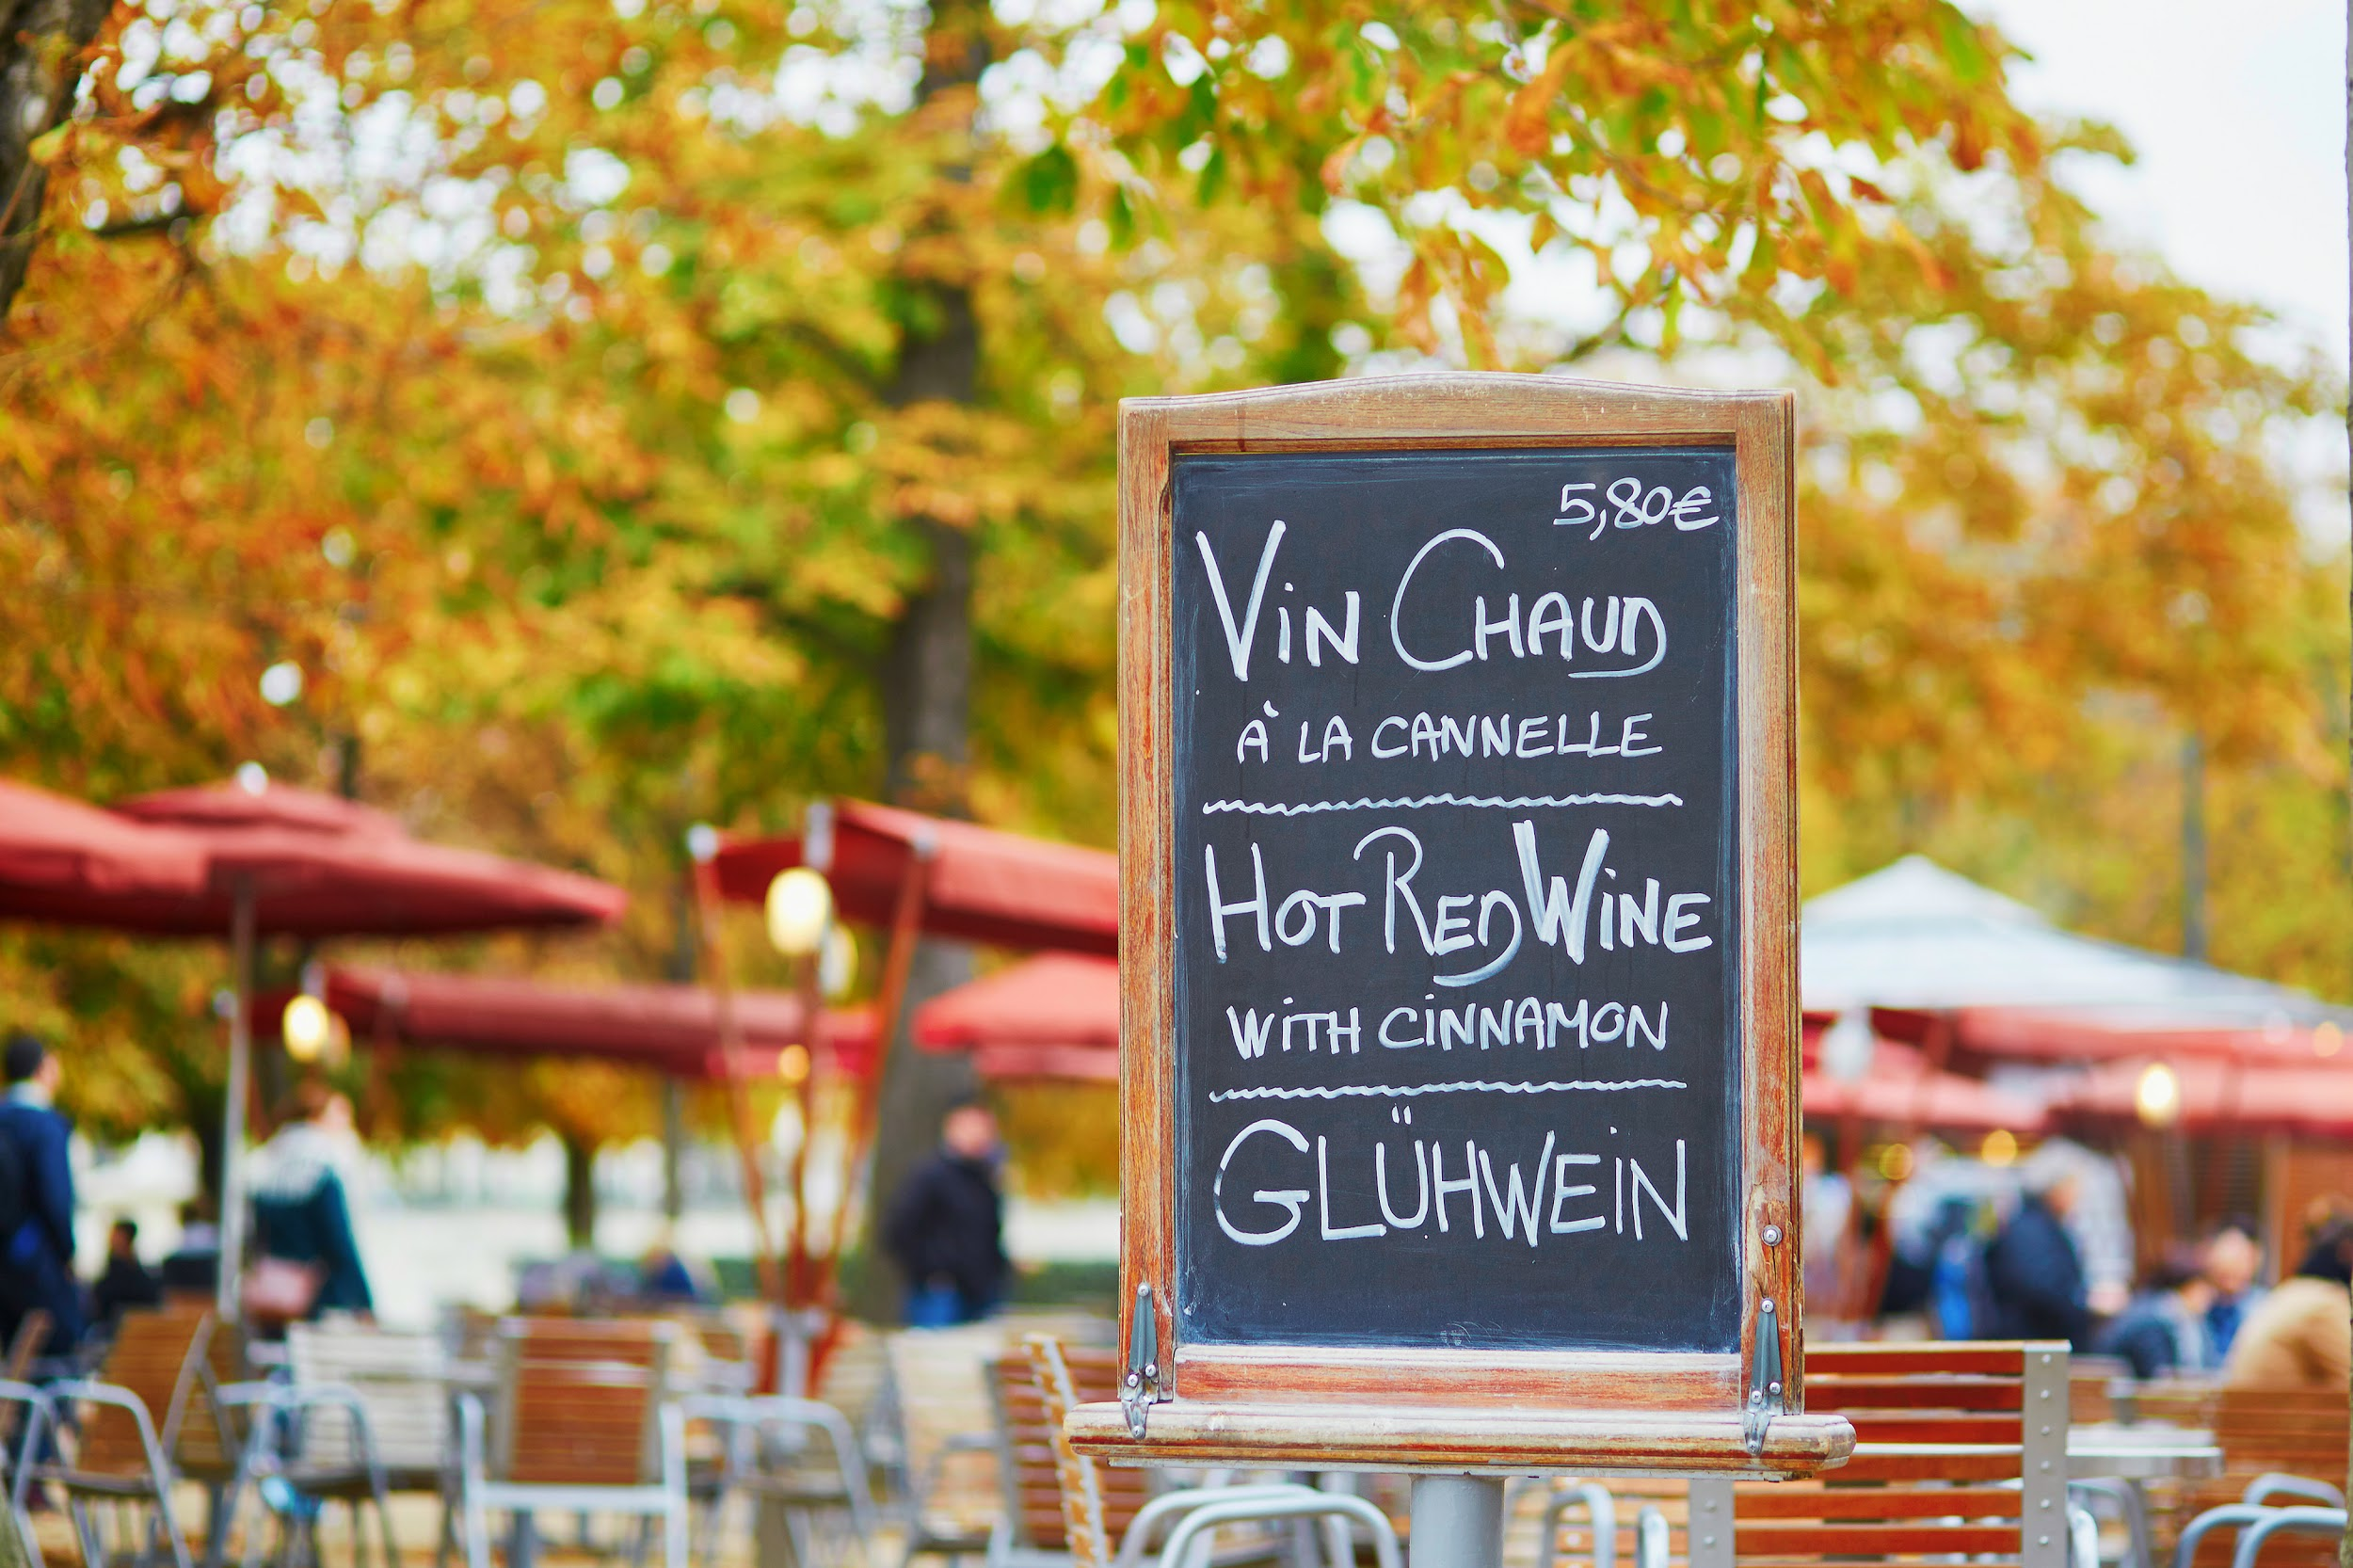 5,80€
ViN CHAUD
À LA CANNELLE
HOT RED WiNE
WiTH CiNNAMON
GLÜHWEiN